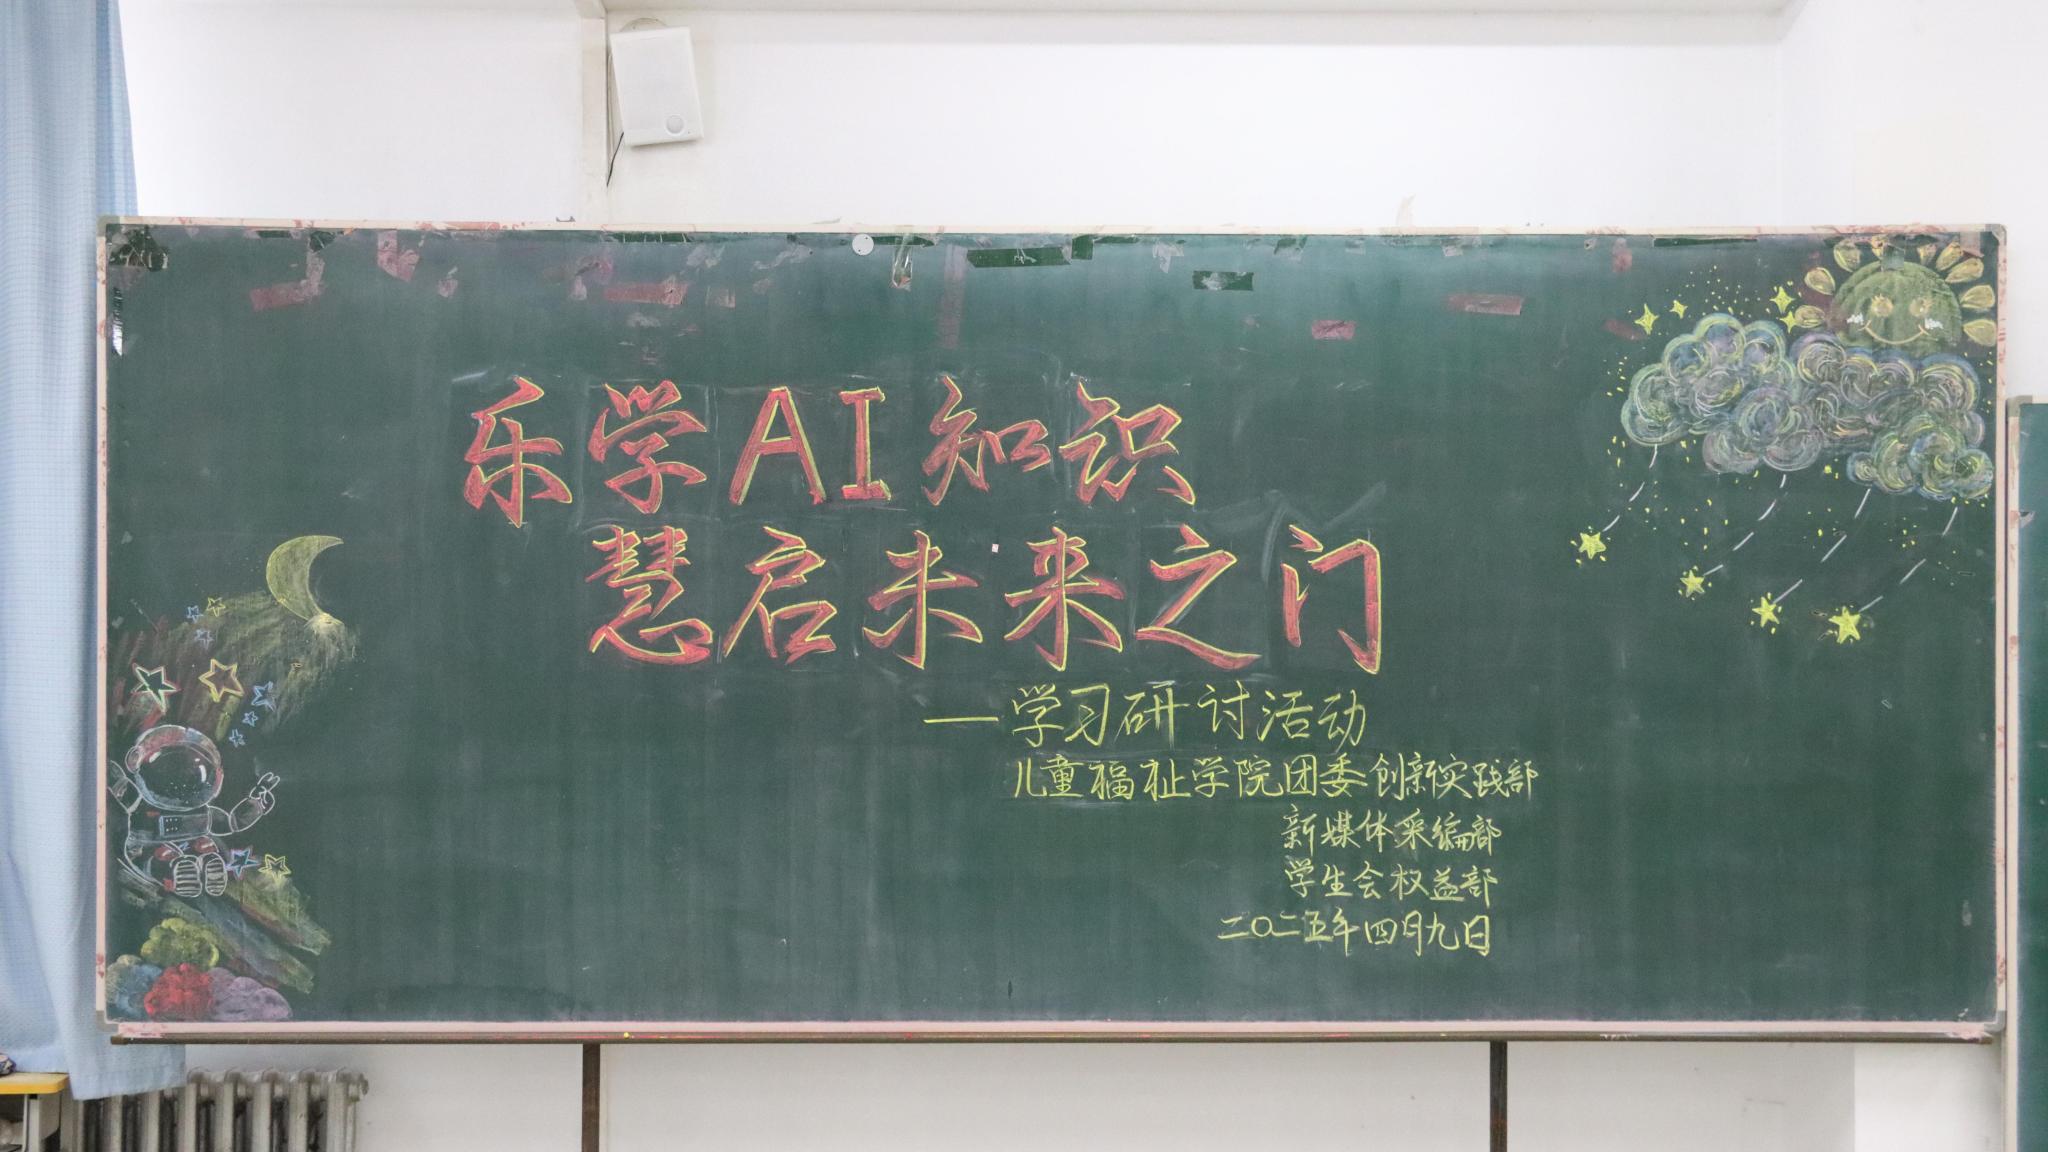 乐学AI知识
慧启未来之门
—学习研讨活动
儿童福祉学院团委创新实践部
新媒体采编部
学生会权益部
二〇二五年四月九日